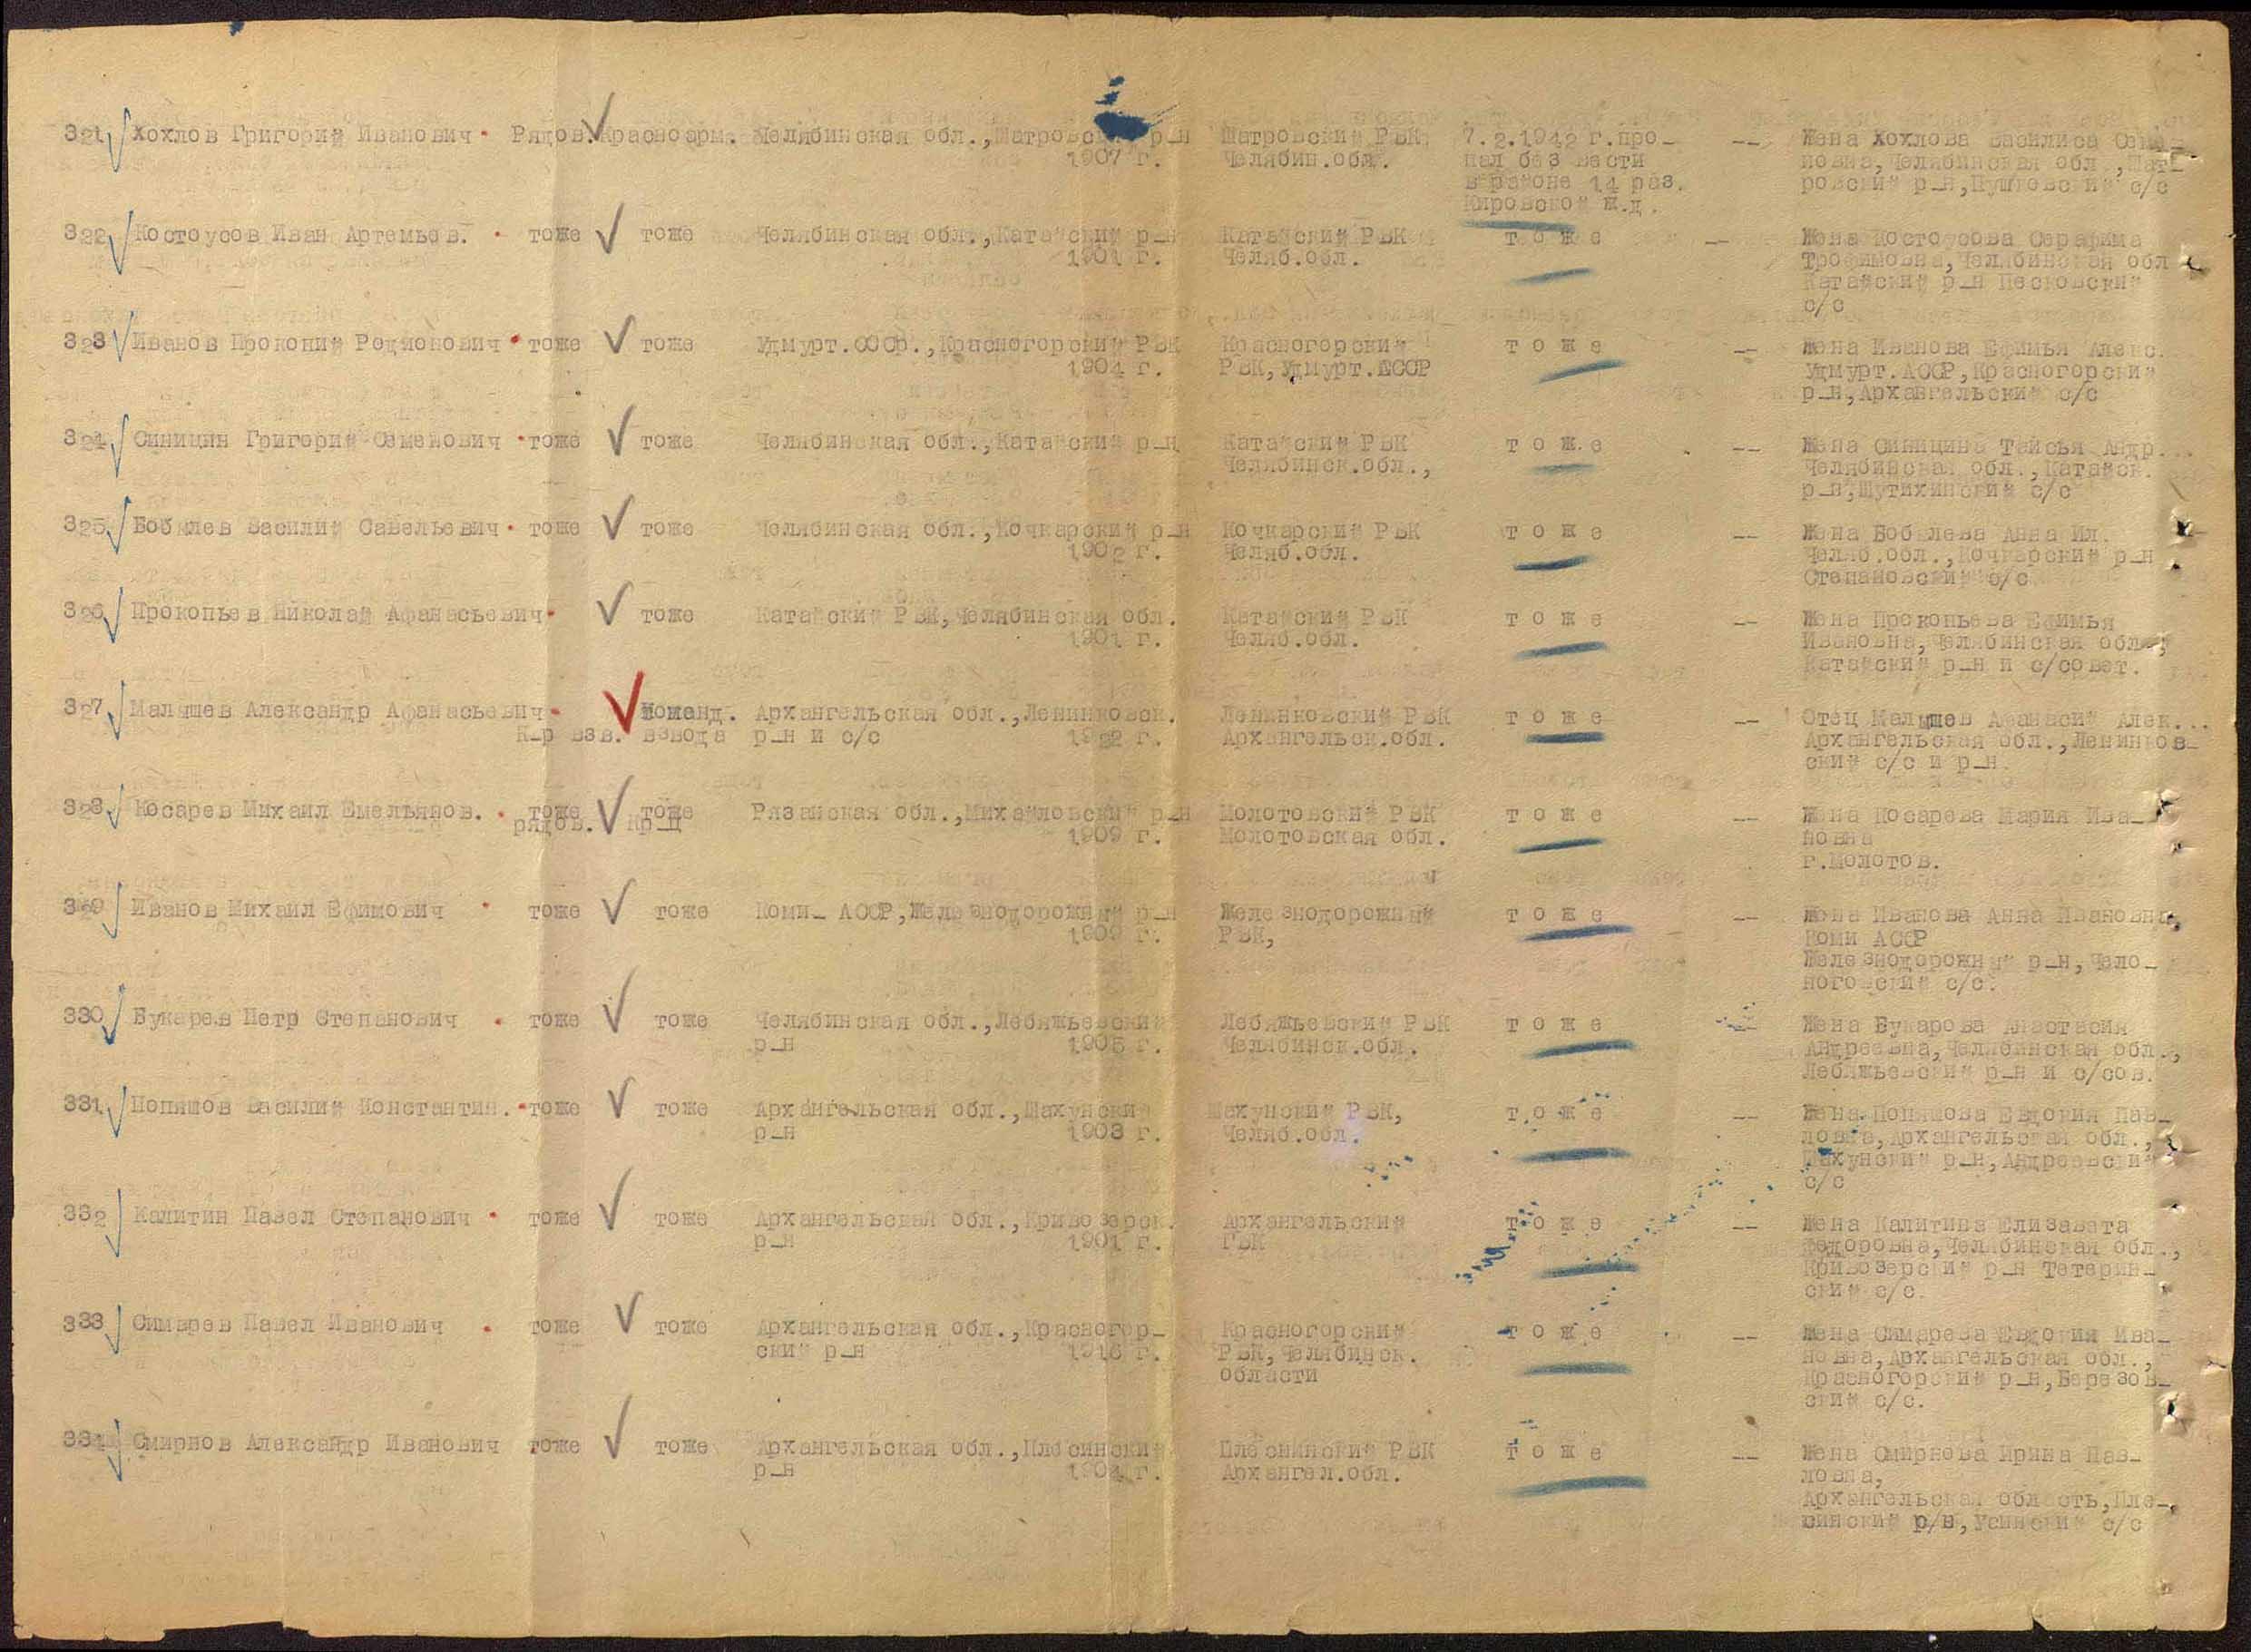 321 Хохлов Григорий Иванович Рядов. Красноарм. Челябинская обл., Шатровский р-н Шатровский РВК 7.2.1942 г. про- -- Жена Хохлова Василиса Семе-
1907 г. Челябин.обл. пал без вести новна, Челябинская обл., Шат-
в районе 14 раз. ровский р-н, с/с
Кировской ж.д.
322 Костоусов Иван Артемьев. тоже тоже Челябинская обл., Катайский р-н Катайский РВК тоже -- Жена Костоусова Серафима
1901 г. Челяб.обл. Трофимовна, Челябинская обл
Катайский р-н Песковский
с/с
323 Иванов Прокопий Родионович тоже тоже Удмурт.СССР., Красногорский РВК Красногорский тоже -- Жена Иванова Ефимья Алекс.
1904 г. РВК, Удмурт.АССР Удмурт.АССР, Красногорский
р-н, Архангельский с/с
324 Синицин Григорий Семенович тоже тоже Челябинская обл., Катайский р-н Катайский РВК тоже -- Жена Синицина Таисья Андр.
Челябинск.обл., Челябинская обл., Катайск.
р-н, Шутихинский с/с
325 Бобылев Василий Савельевич тоже тоже Челябинская обл., Кочкарский р-н Кочкарский РВК тоже -- Жена Бобылева Анна Ил.
1902 г. Челяб.обл. Челяб.обл., Кочкарский р-н
Степановский с/с
326 Прокопьев Николай Афанасьевич тоже Катайский РВК, Челябинская обл. Катайский РВК тоже -- Жена Прокопьева Ефимья
1901 г. Челяб.обл. Ивановна, Челябинская обл.,
Катайский р-н и с/совет.
327 Малышев Александр Афанасьевич Команд. Архангельская обл., Ленинковск. Ленинковский РВК тоже -- Отец Малышев Афанасий Алек...
К-р взв. взвода р-н и с/с 1922 г. Архангельск.обл. Архангельская обл., Ленинков-
ский с/с и р-н.
328 Косарев Михаил Емельянов. тоже тоже Рязанская обл., Михайловский р-н Молотовский РВК тоже -- Жена Косарева Мария Ива-
рядов. Кр-ц 1909 г. Молотовская обл. новна
г.Молотов.
329 Иванов Михаил Ефимович тоже тоже Коми- АССР, Железнодорожный р-н Железнодорожный тоже -- Жена Иванова Анна Ивановна,
1909 г. РВК, Коми АССР
Железнодорожный р-н, Чело-
ногоский с/с.
330 Букарев Петр Степанович тоже тоже Челябинская обл., Лебяжьевский Лебяжьевский РВК тоже -- Жена Букарова Анастасия
р-н 1905 г. Челябинск.обл. Андреевна, Челябинская обл.,
Лебяжьевский р-н и с/сов.
331 Попяшов Василий Константин. тоже тоже Архангельская обл., Шахунский Шахунский РВК, тоже -- Жена Попяшова Евдокия Пав-
р-н 1903 г. Челяб.обл. ловна, Архангельская обл.,
Шахунский р-н, Андреевский
с/с
332 Калитин Павел Степанович тоже тоже Архангельская обл., Кривозерск. Архангельский тоже -- Жена Калитина Елизавета
р-н 1901 г. ГВК Федоровна, Челябинская обл.,
Кривозерский р-н Тетерин-
ский с/с.
333 Симарев Павел Иванович тоже тоже Архангельская обл., Красногор- Красногорский тоже -- Жена Симарева Евдокия Ива-
ский р-н 1916 г. РВК, Челябинск. новна, Архангельская обл.,
области Красногорский р-н, Березов-
ский с/с.
334 Смирнов Александр Иванович тоже тоже Архангельская обл., Плесинский Плесинский РВК тоже -- Жена Смирнова Ирина Пав-
р-н 1904 г. Архангел.обл. ловна,
Архангельская область, Пле-
синский р/н, Усинский с/с